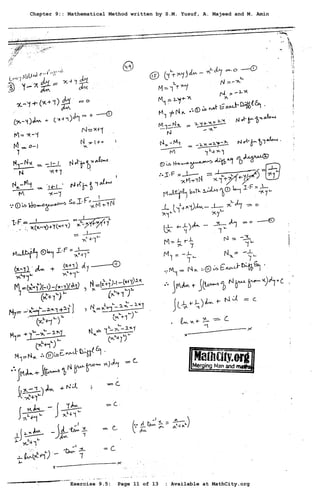 Chapter 9:: Mathematical Method written by S.M. Yusuf, A. Majeed and M. Amin
⑨ y - x dy/dx = x + y dy/dx
x - y + (x + y) dy/dx = 0
(x-y)dx + (x+y)dy = 0 —①
M = x-y  N = x+y
My = 0-1  Nx = 1+0
(My-Nx)/N = (-1-1)/(x+y) Not fn of x alone
(Nx-My)/M = (1+1)/(x-y) Not fn of y alone
∵ ① is Homogeneous So I.F = 1/(xM+yN)
I.F = 1/(x(x-y)+y(x+y)) = 1/(x²-xy+xy+y²)
= 1/(x²+y²)
Multiply ① by I.F = 1/(x²+y²)
(x-y)/(x²+y²) dx + (x+y)/(x²+y²) dy
My = + (y²-x²-2xy)/(x²+y²)²
Nx = (y²-x²-2xy)/(x²+y²)²
My = Nx ∴ ② is Exact Diff Eq.
∴ ∫Mdx + ∫(terms of N free from x)dy = C
∫((x-y)/(x²+y²))dx + Nil = C
∫ xdx/(x²+y²) - ∫ ydx/(x²+y²) = C
½∫ 2xdx/(x²+y²) - ∫ d tan⁻¹ x/y = C
½ ln(x²+y²) - tan⁻¹ x/y = C
49
⑩ (y²+xy)dx - x²dy = 0 —①
M = y²+xy  N = -x²
My = 2y+x  Nx = -2x
My ≠ Nx ∴ ① is not Exact Diff Eq.
(My-Nx)/N = (2y+x+2x)/(-x²) Not fn of x alone
(Nx-My)/M = (-2x-2y-x)/(y²+xy) Not fn of y alone
① is Homogeneous diff eq of degree 2
∴ I.F = 1/(xM+yN) = 1/(xy²+x²y-x²y) = 1/(xy²)
Multiply both sides of ① by I.F = 1/(xy²)
1/(xy²) (y²+xy)dx - 1/(xy²) x²dy = 0
(1/x + 1/y)dx - x/y² dy = 0 —②
M = 1/x + 1/y  N = -x/y²
My = -1/y²  Nx = -1/y²
∵ My = Nx ∴ ② is Exact Diff Eq.
∫Mdx + ∫(terms of N free from x)dy = C
∫(1/x + 1/y)dx + Nil = C
lnx + x/y = C
MathCity.org
Merging Man and maths
Exercise 9.5: Page 11 of 13 : Available at MathCity.org